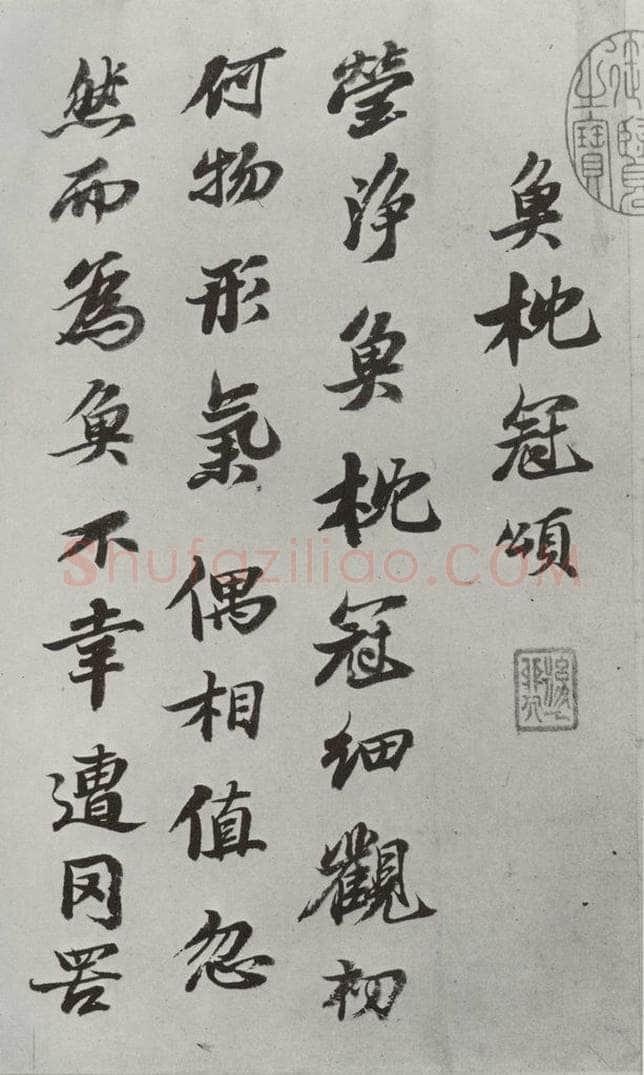 魚枕冠頌
瑩淨魚枕冠細觀初
何物形氣偶相值忽
然而為魚不幸遭罔罟
Shufaziliao.COM